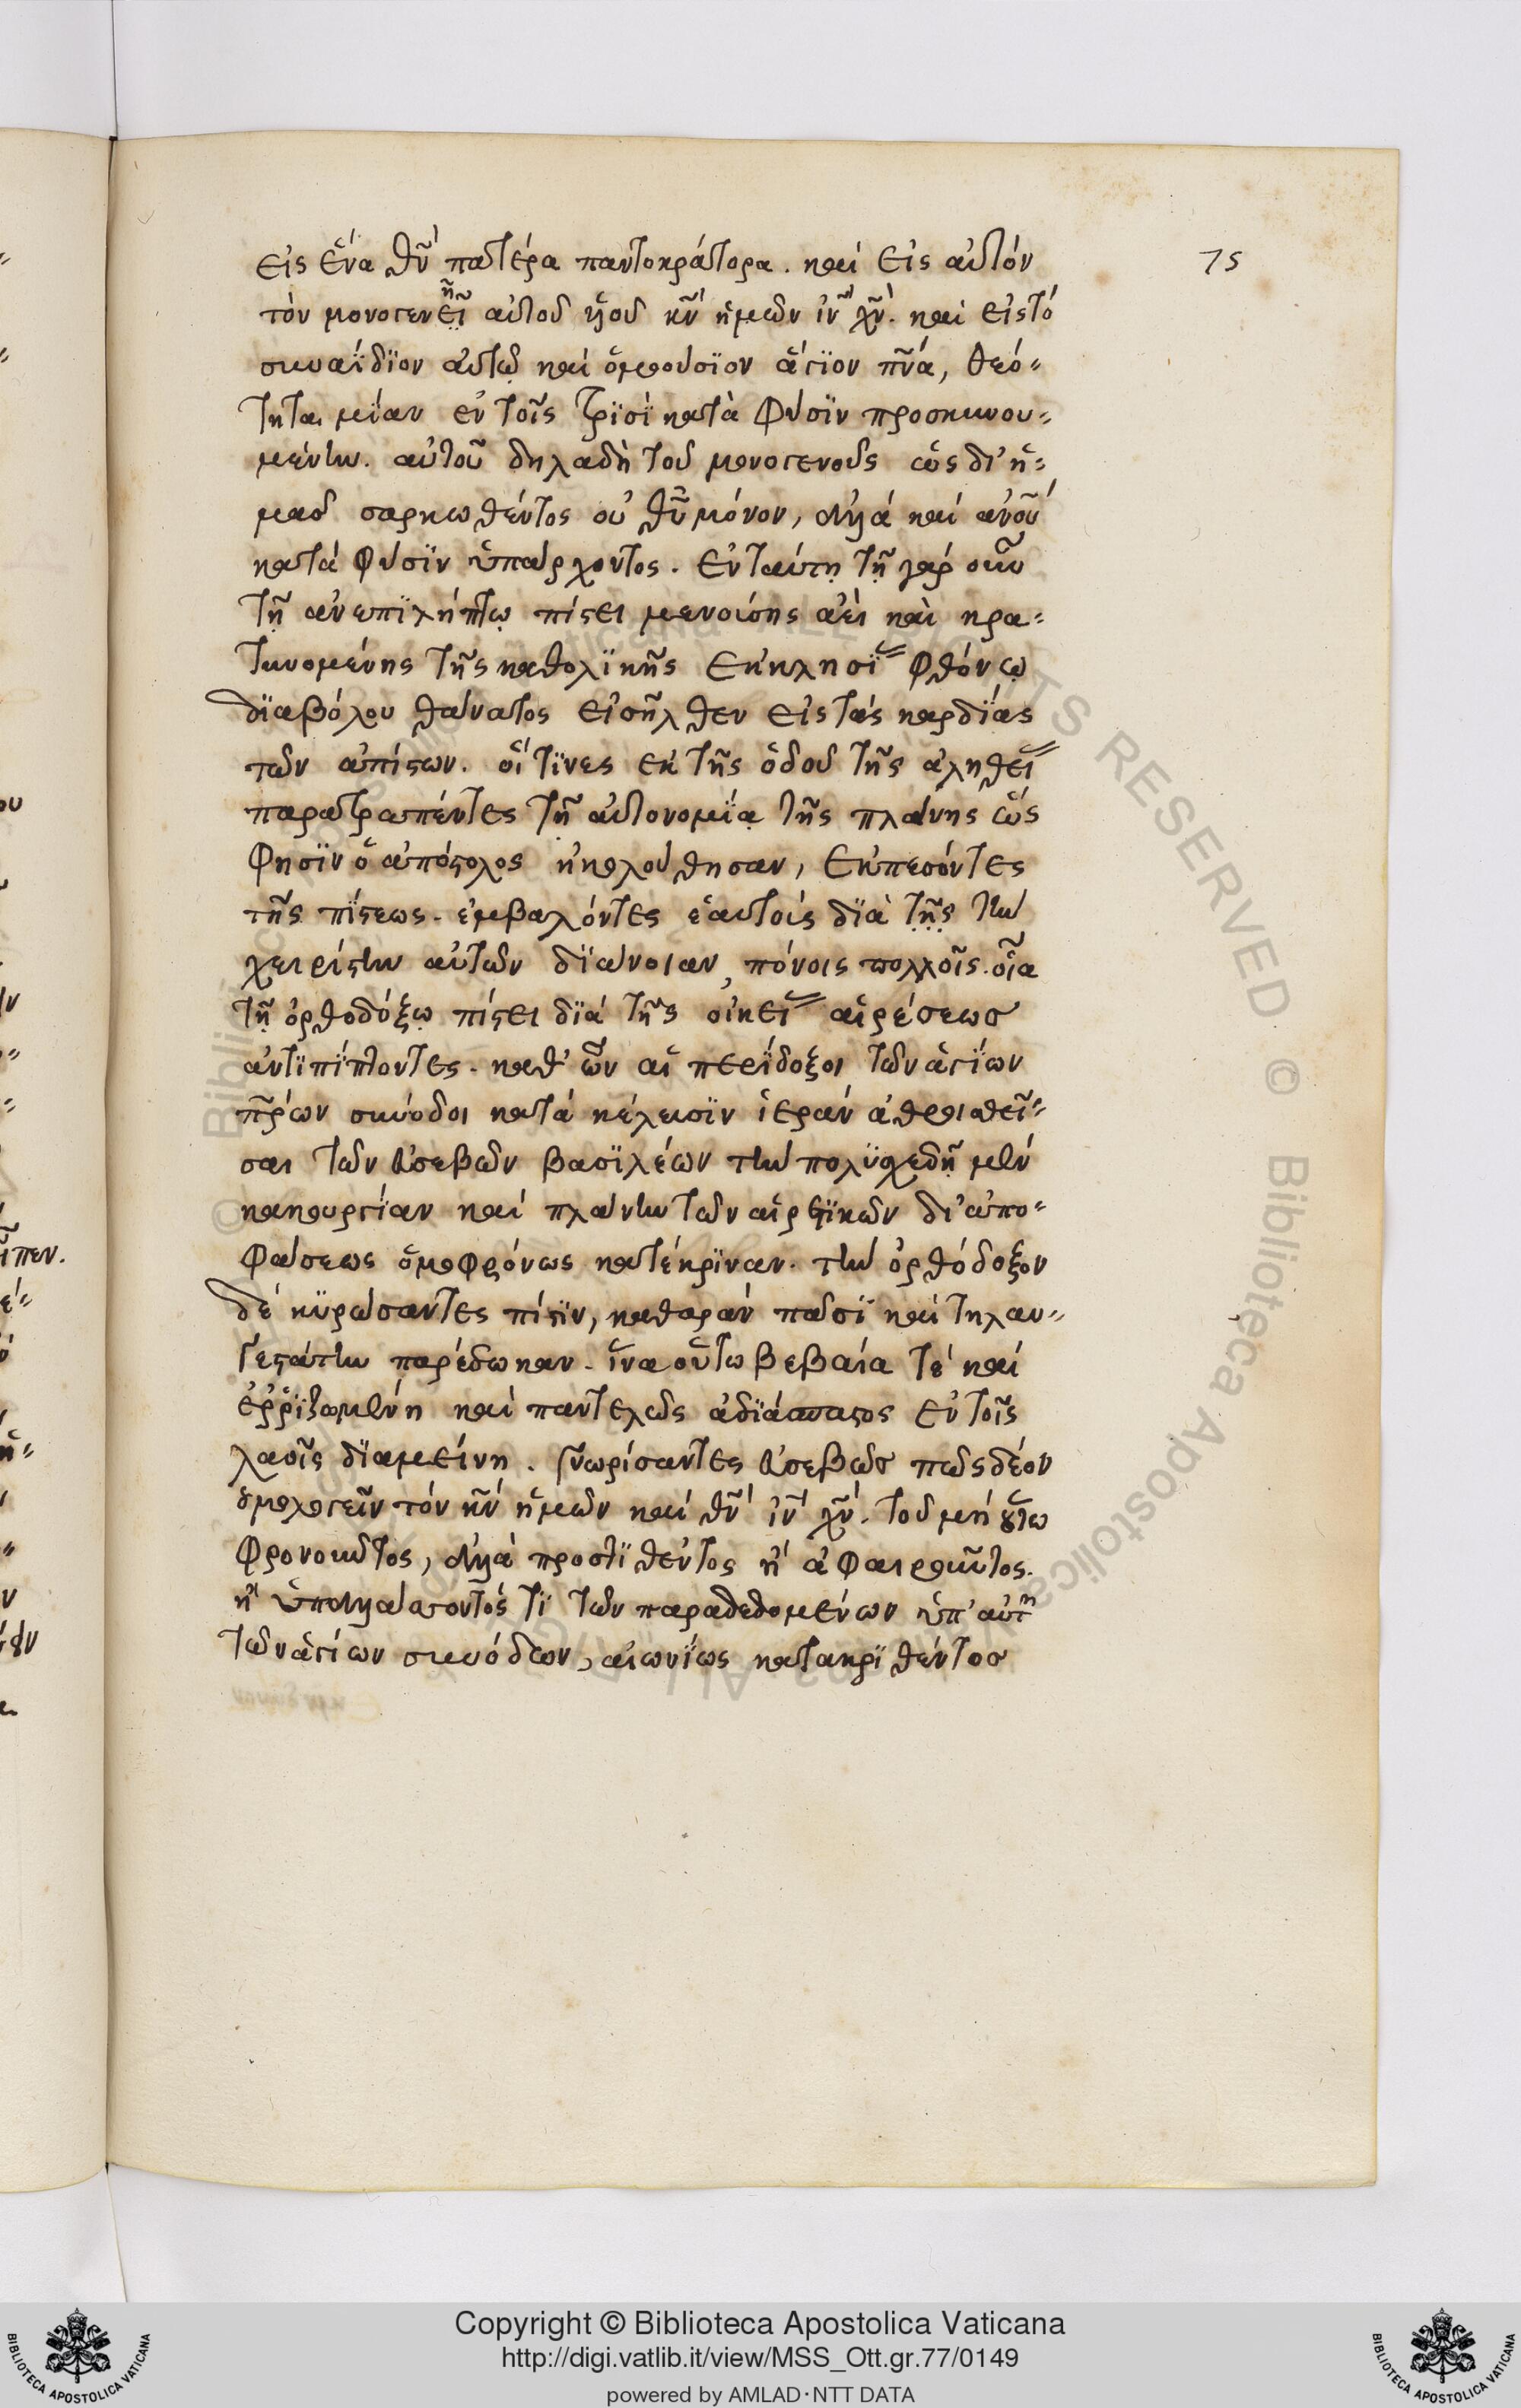 75
εἰς ἕνα θν̅ πατέρα παντοκράτορα. καί εἰς αὐτόν
τὸν μονογενεῖ ῆ αὐτοῦ υἱοῦ κν̅ ἡμῶν ιν̅ χν̅. καί εἰς τό
συναΐδϊον αὐτῶ καί ὁμοούσϊον ἅγϊον πν̅ά, θεό-
τητα μϊαν ἐν τοῖς τρϊσί κατὰ φύσϊν προσκυνου-
μένην. αὐτοῦ δηλαδὴ τοῦ μονογενοῦς ὡς δι' ἡ-
μᾶσ σαρκωθέντος οὐ θυ̅ μόνον, ἀλλά καί ἀνου̅
κατά φύσϊν ὑπάρχοντος. ἐν ταύτῃ τῇ γάρ οὖν
τῇ ἀνεπϊλήπτῳ πίστει μενούσης ἀεὶ καὶ κρα-
τυνομένης τῆς καθολϊκῆς ἐκκλησϊ φθόνῳ
δϊαβόλου θάνατος εἰσῆλθεν εἰς τάς καρδϊας
τῶν ἀπίστων. οἵτϊνες ἐκ τῆς ὁδοῦ τῆς ἀληθεί
παρατραπέντες τῇ αὐτονομϊᾳ τῆς πλάνης ὥς
φησϊν ὁ ἀπόστολος ἠκολούθησαν, ἐκπεσόντες
τῆς πίστεως. ἐμβαλόντες ἑαυτοῖς δϊὰ τῆς τὴν
χειρίστην αὐτῶν δϊάνοιαν, πόνοις πολλοῖς. οἷα
τῇ ὀρθοδόξῳ πίστει δϊά τῆς οἰκεί αἱρέσεωσ
ἀντϊπίπτοντες. καθ' ὧν αἱ περίδοξοι τῶν ἁγίων
πρ̅ων σύνοδοι κατά κέλευσϊν ἱεράν ἀθροισθεῖ-
σαι τῶν εὐσεβῶν βασϊλέων τὴν πολϋσχεδῆ μὲν
κακουργίαν καί πλάνην τῶν αἱρετϊκῶν δι' ἀπο-
φάσεως ὁμοφρόνως κατέκρϊναν. τὴν ὀρθόδοξον
δέ κϋρώσαντες πίστϊν, καθαράν πᾶσϊ καί τηλαυ-
γεστάτην παρέδωκαν. ἵνα οὕτω βεβαία τέ καί
ἐρρϊζωμένη καὶ παντελῶς ἀδϊάσπαστος ἐν τοῖς
λαοῖς δϊαμείνη. γνωρίσαντες εὐσεβῶσ πῶς δέον
ὁμολογεῖν τόν κν̅ ἡμῶν καί θν̅ ιν̅ χν̅. τοῦ μή οὕτω
φρονοῦντος, ἀλλὰ προστϊθέντος ἤ ἀφαιροῦντος.
ἤ ὑπαλλάττοντός τϊ τῶν παραδεδομένων ὑπ' αὐτῶν
τῶν ἁγίων συνόδων, αἰωνίως κατακρϊθέντοσ
Copyright © Biblioteca Apostolica Vaticana
http://digi.vatlib.it/view/MSS_Ott.gr.77/0149
powered by AMLAD·NTT DATA